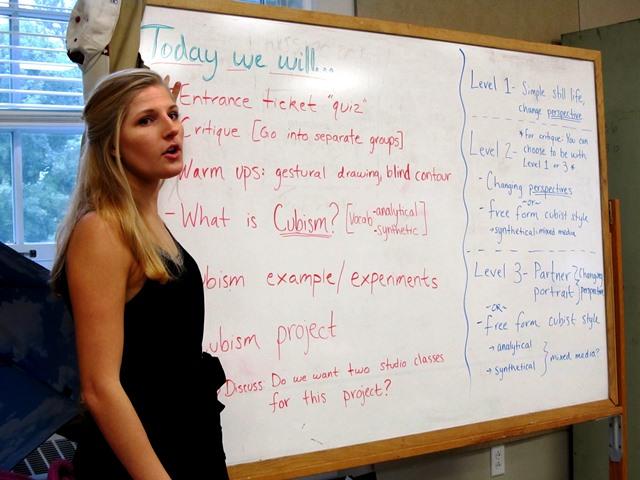 Today we will...
- Entrance ticket "quiz"
Critique [Go into separate groups]
Warm ups: gestural drawing, blind contour
- What is Cubism? [Vocab -analytical
-synthetic]
Cubism example/experiments
Cubism project
Discuss: Do we want two studio classes
for this project?
Level 1- Simple still life,
change perspective
*for critique: You can
choose to be with
Level 1 or 3*
Level 2-
- Changing perspectives
-or-
- free form cubist style
→ synthetical: mixed media
Level 3- Partner } Changing
portrait } perspective
-OR-
- free form cubist style
→ analytical
→ synthetical } mixed media?